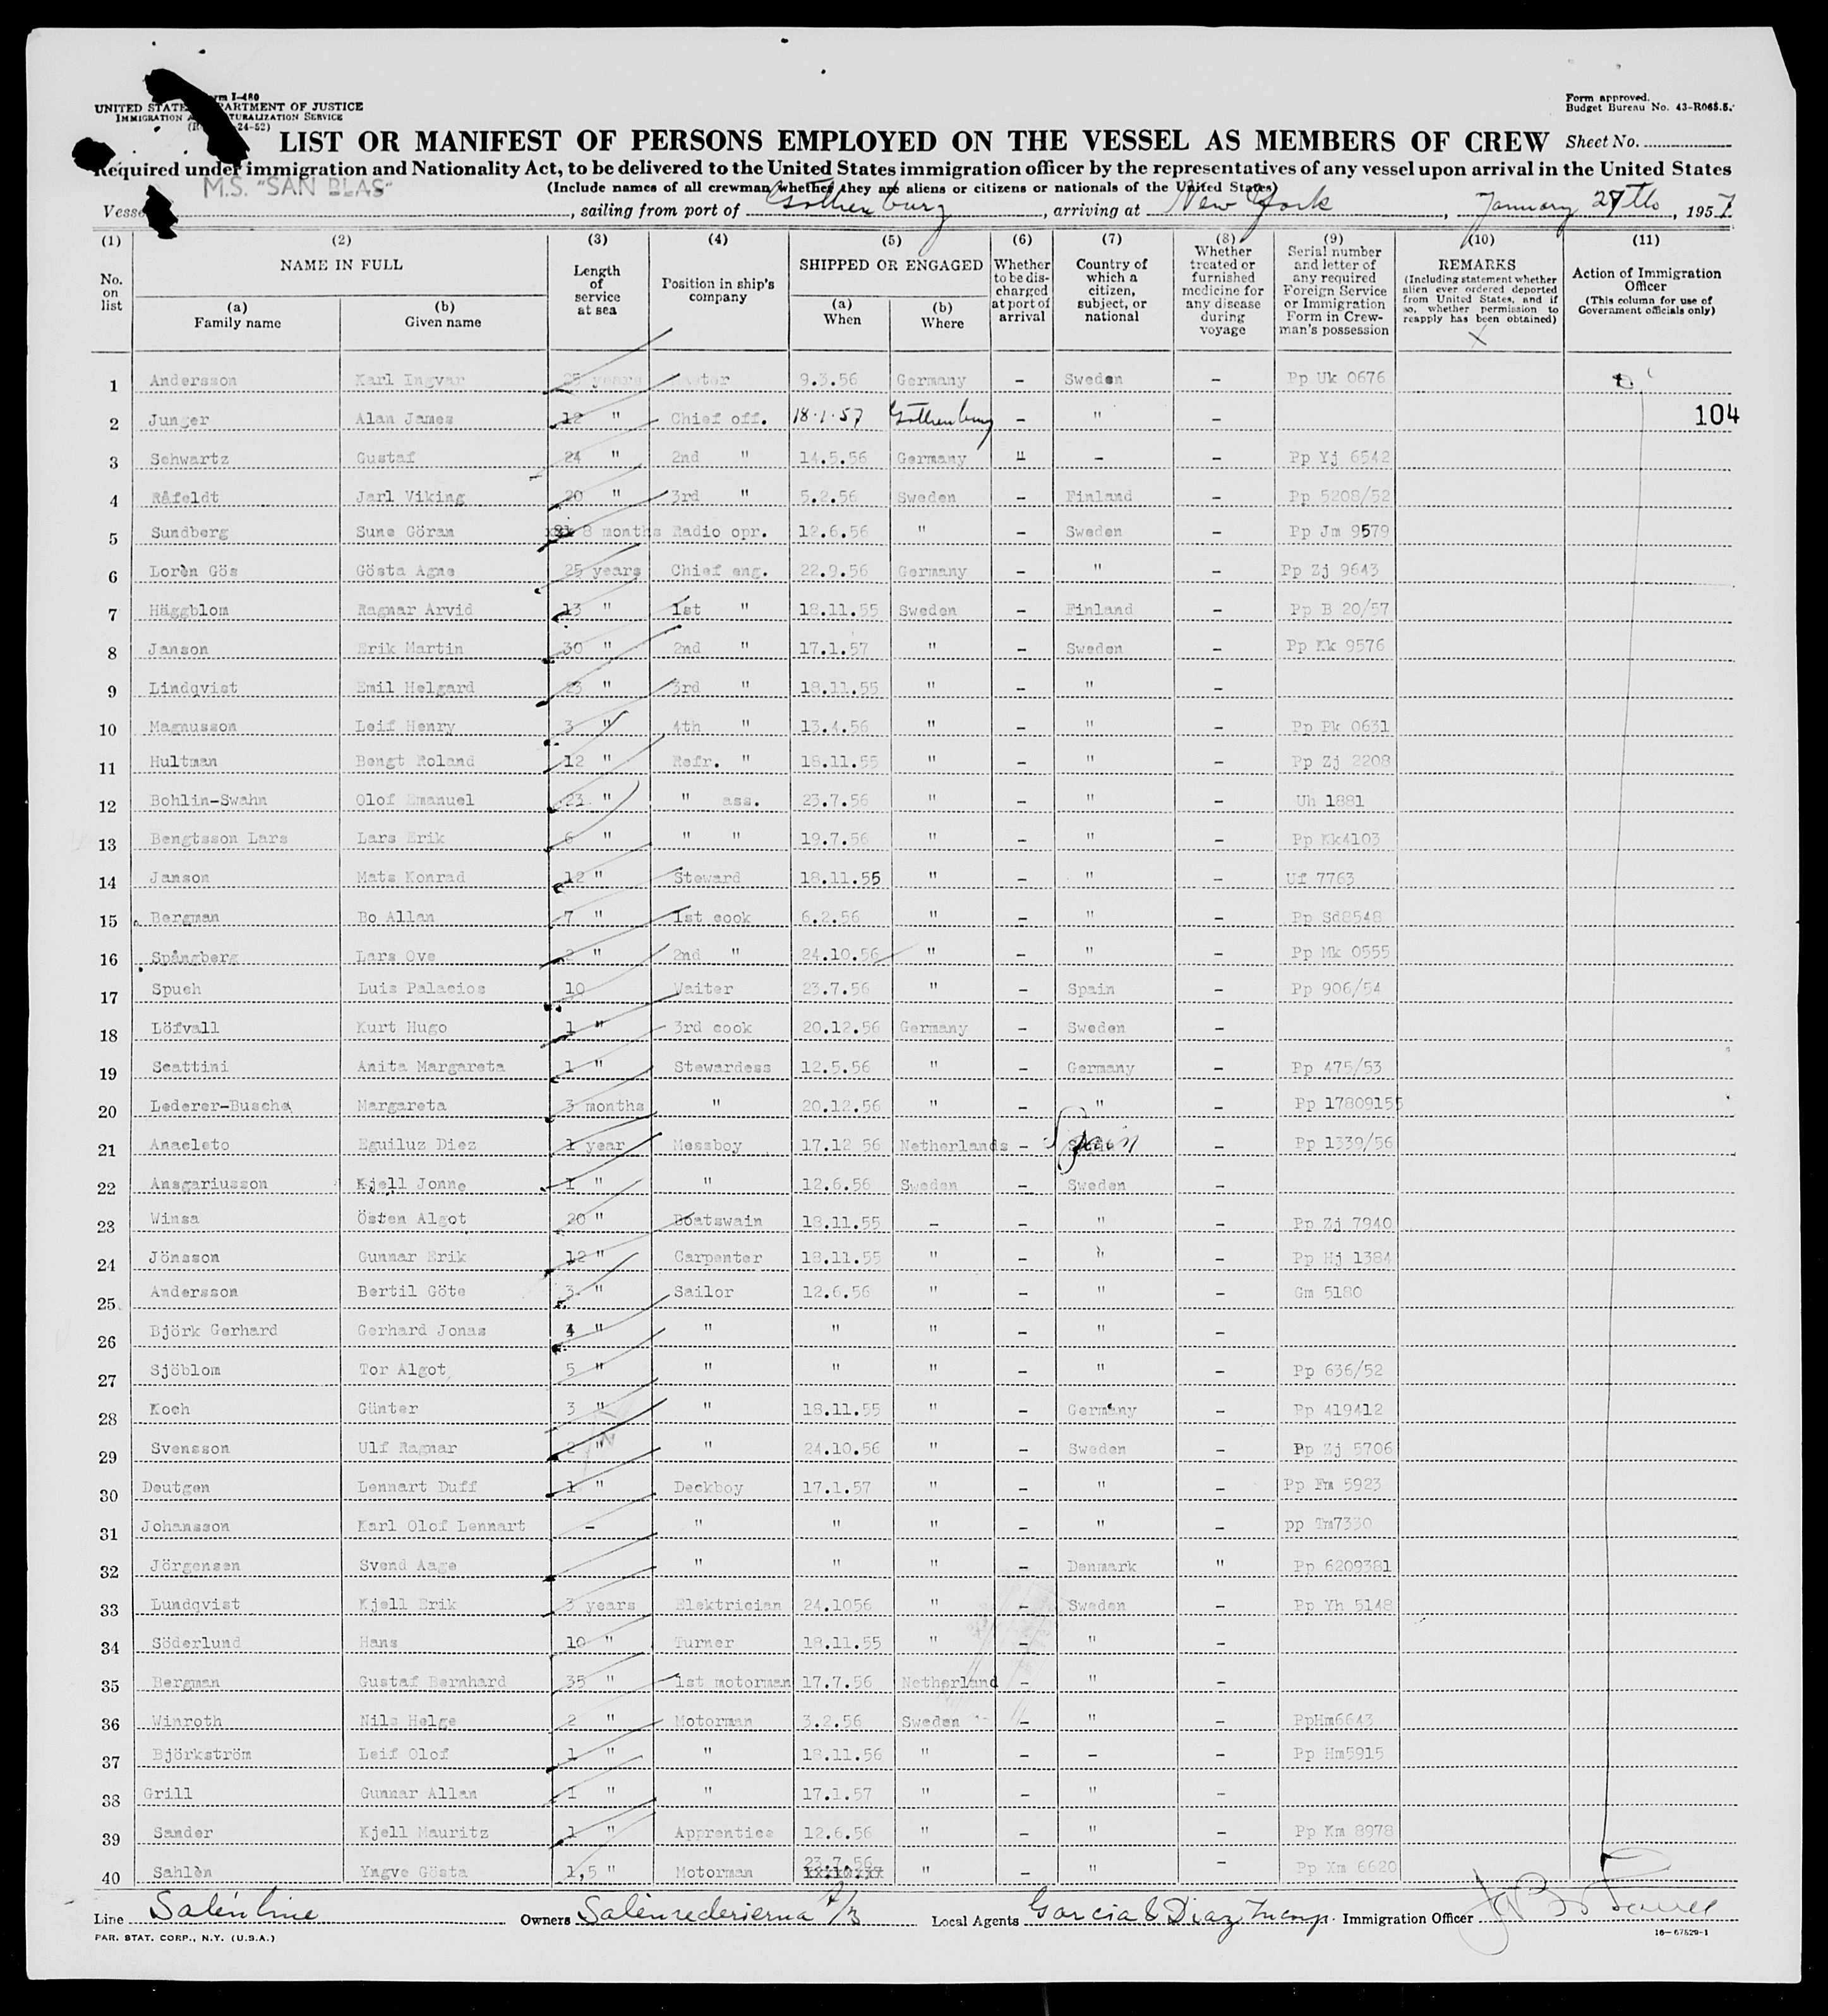 Form I-480
UNITED STATES DEPARTMENT OF JUSTICE
IMMIGRATION AND NATURALIZATION SERVICE
24-52)
Form approved.
Budget Bureau No. 43-R065.5.
LIST OR MANIFEST OF PERSONS EMPLOYED ON THE VESSEL AS MEMBERS OF CREW Sheet No.
Required under immigration and Nationality Act, to be delivered to the United States immigration officer by the representatives of any vessel upon arrival in the United States
(Include names of all crewman whether they are aliens or citizens or nationals of the United States)
Vessel M.S. "SAN BLAS", sailing from port of Gothenburg, arriving at New York, January 27th, 1957
(1) (2) (3) (4) (5) (6) (7) (8) (9) (10) (11)
No. on list
NAME IN FULL
(a) Family name
(b) Given name
Length of service at sea
Position in ship's company
SHIPPED OR ENGAGED
(a) When
(b) Where
Whether to be discharged at port of arrival
Country of which a citizen, subject, or national
Whether treated or furnished medicine for any disease during voyage
Serial number and letter of any required Foreign Service or Immigration Form in Crewman's possession
REMARKS
(Including statement whether alien ever ordered deported from United States, and if so, whether permission to reapply has been obtained)
X
Action of Immigration Officer
(This column for use of Government officials only)
1 Andersson Karl Ingvar 25 years 9.3.56 Germany - Sweden - Pp Uk 0676
2 Junger Alan James 12 " Chief off. 18.1.57 Gothenburg - " - 104
3 Schwartz Gustaf 24 " 2nd " 14.5.56 Germany " - - Pp Yj 6542
4 Råfeldt Jarl Viking 20 " 3rd " 5.2.56 Sweden - Finland - Pp 5208/52
5 Sundberg Sune Göran 8 months Radio opr. 12.6.56 " - Sweden - Pp Jm 9579
6 Lorèn Gös Gösta Agne 25 years Chief eng. 22.9.56 Germany - " - Pp Zj 9643
7 Häggblom Ragnar Arvid 13 " 1st " 18.11.55 Sweden - Finland - Pp B 20/57
8 Janson Erik Martin 30 " 2nd " 17.1.57 " - Sweden - Pp Kk 9576
9 Lindqvist Emil Helgard 23 " 3rd " 18.11.55 " - " -
10 Magnusson Leif Henry 3 " 4th " 13.4.56 " - " - Pp Pk 0631
11 Hultman Bengt Roland 12 " Refr. " 18.11.55 " - " - Pp Zj 2208
12 Bohlin-Swahn Olof Emanuel 23 " " ass. 23.7.56 " - " - Uh 1881
13 Bengtsson Lars Lars Erik 6 " " " 19.7.56 " - " - Pp Kk4103
14 Janson Mats Konrad 12 " Steward 18.11.55 " - " - Uf 7763
15 Bergman Bo Allan 7 " 1st cook 6.2.56 " - " - Pp Sd8548
16 Spångberg Lars Ove 2 " 2nd " 24.10.56 " - " - Pp Mk 0555
17 Spuch Luis Palacios 10 Waiter 23.7.56 " - Spain - Pp 906/54
18 Löfvall Kurt Hugo 1 " 3rd cook 20.12.56 Germany - Sweden -
19 Scattini Anita Margareta 1 " Stewardess 12.5.56 " - Germany - Pp 475/53
20 Lederer-Busche Margareta 3 months " 20.12.56 " - " - Pp 17809155
21 Anacleto Eguiluz Diez 1 year Messboy 17.12 56 Netherlands - Spain - Pp 1339/56
22 Ansgariusson Kjell Jonne 1 " " 12.6.56 Sweden - Sweden -
23 Winsa Östen Algot 20 " Boatswain 18.11.55 - - " - Pp Zj 7940
24 Jönsson Gunnar Erik 12 " Carpenter 18.11.55 " - " - Pp Hj 1384
25 Andersson Bertil Göte 3 " Sailor 12.6.56 " - " - Gm 5180
26 Björk Gerhard Gerhard Jonas 4 " " " " - " -
27 Sjöblom Tor Algot 5 " " " " - " - Pp 636/52
28 Koch Günter 3 " " 18.11.55 " - Germany - Pp 419412
29 Svensson Ulf Ragnar 2 " " 24.10.56 " - Sweden - Pp Zj 5706
30 Deutgen Lennart Duff 1 " Deckboy 17.1.57 " - " - Pp Fm 5923
31 Johansson Karl Olof Lennart - " " " - " - pp Tm7330
32 Jörgensen Svend Aage " " " - Denmark " Pp 6209381
33 Lundqvist Kjell Erik 3 years Elektrician 24.1056 " - Sweden - Pp Yh 5148
34 Söderlund Hans 10 " Turner 18.11.55 " - " -
35 Bergman Gustaf Bernhard 35 " 1st motorman 17.7.56 Netherland - " -
36 Winroth Nils Helge 2 " Motorman 3.2.56 Sweden - " - PpHm6643
37 Björkström Leif Olof 1 " " 18.11.56 " - - - Pp Hm5915
38 Grill Gunnar Allan 1 " " 17.1.57 " - " -
39 Sander Kjell Mauritz 1 " Apprentice 12.6.56 " - " - Pp Km 8978
40 Sahlèn Yngve Gösta 1,5 " Motorman 23.7.56 " - " - Pp Xm 6620
Line Salén line Owners Salénrederierna A/B Local Agents Garcia & Diaz Immigration Officer
PAR. STAT. CORP., N.Y. (U.S.A.)
16-67529-1